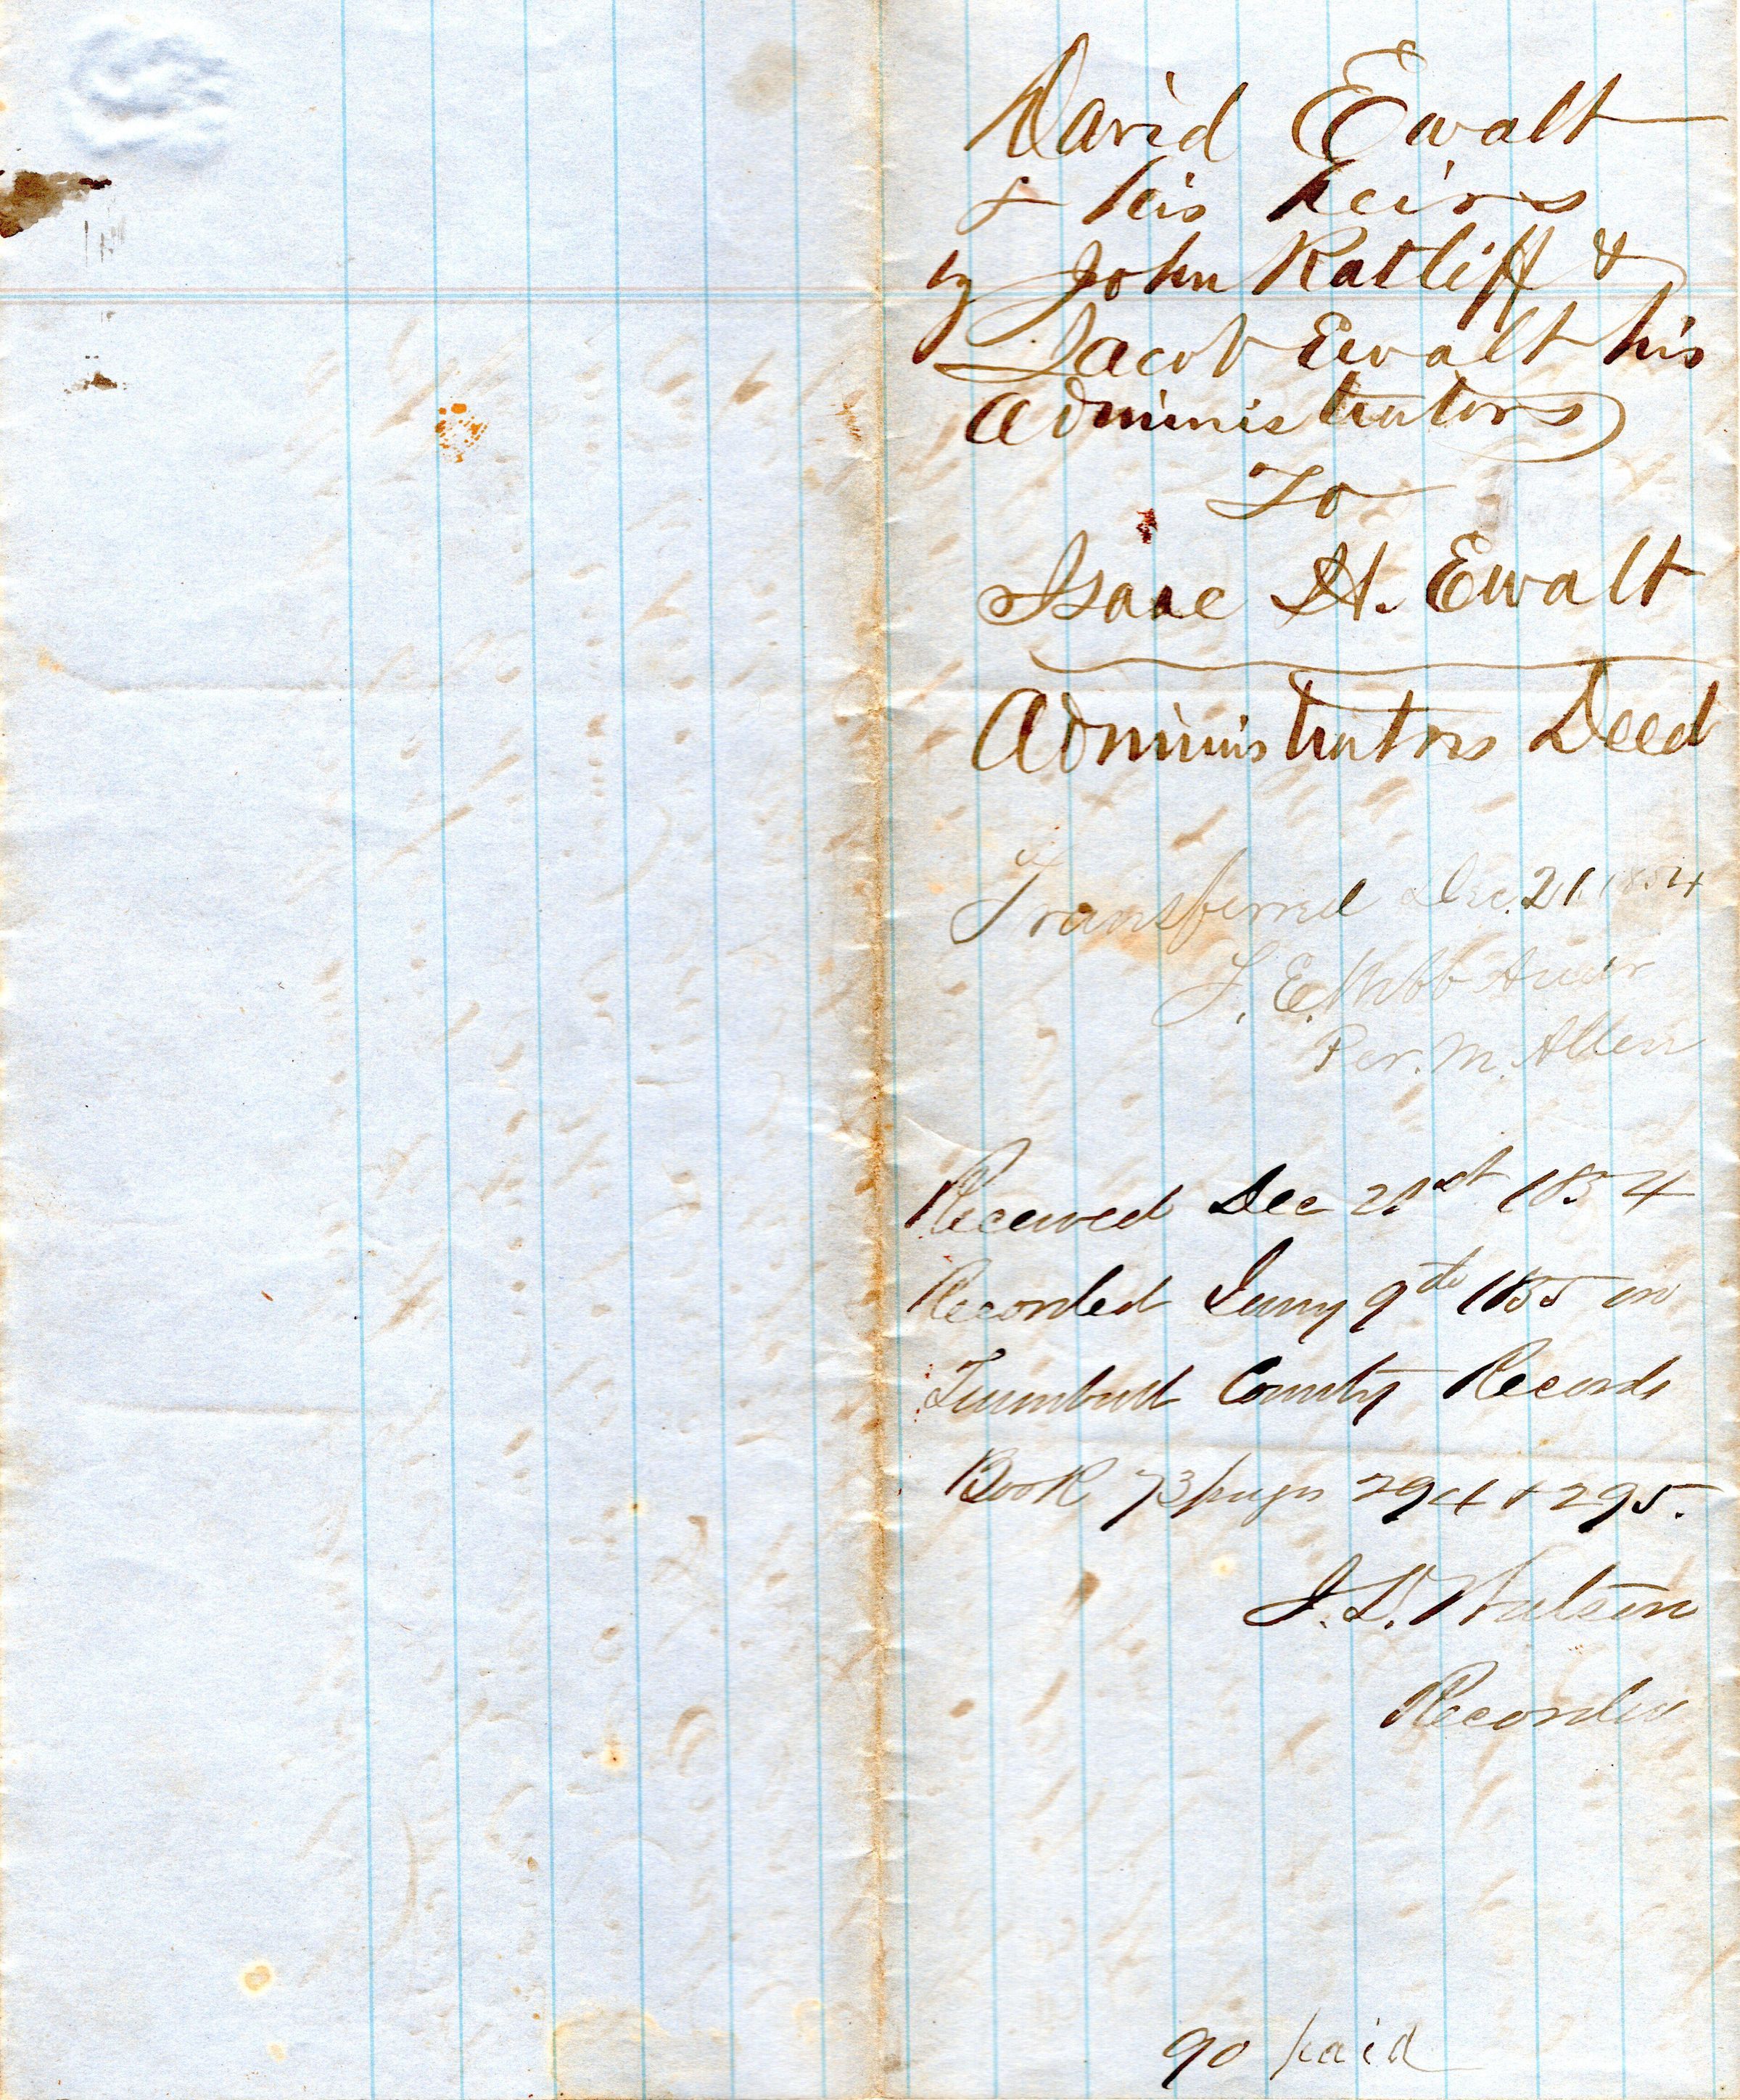 David Ewalt
& his heirs
by John Ratliff &
Jacob Ewalt his
Administrators
To
Isaac H. Ewalt
Administrators Deed
Transferred Dec. 21 1854
E. Webb Audr
Per. M. Allen
Received Dec 21st 1854
Recorded Jany 9th 1855 in
Trumbull County Records
Book 73 pages 294 & 295.
Watson
Recorder
90 paid